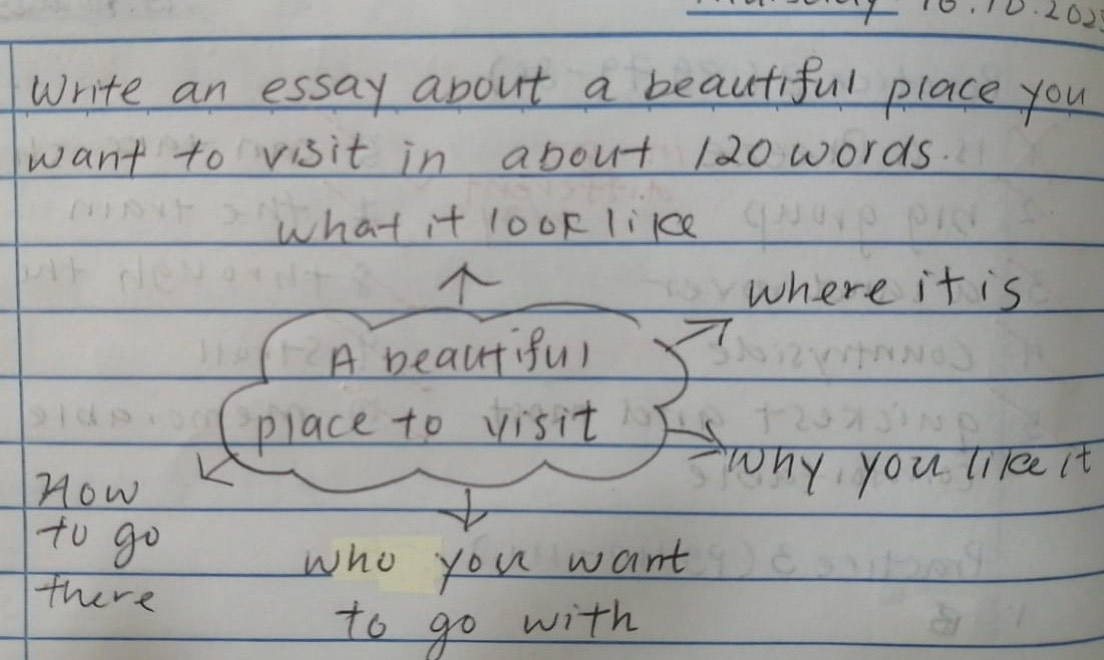 Thursday 16.10.2025
Write an essay about a beautiful place you
want to visit in about 120 words.
what it look like
where it is
A beautiful
place to visit
why you like it
How
to go
there
who you want
to go with